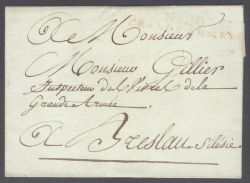 A Monsieur
Monsieur Gillier
Inspecteur de la
Grande Armée
à Breslau Silésie